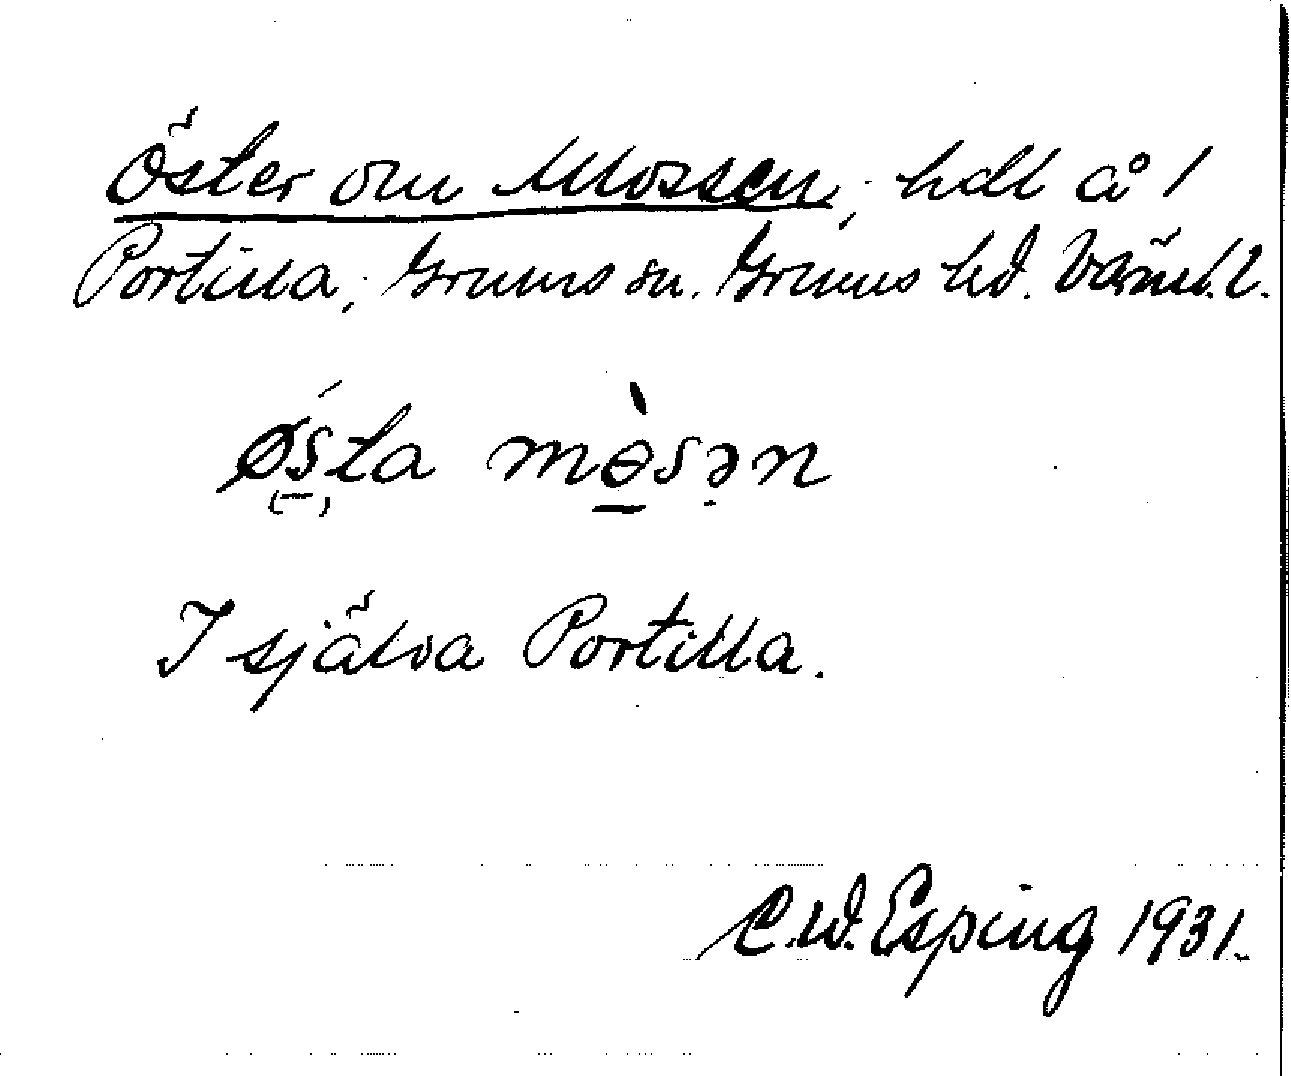 Öster om Mossen, hdl å 1
Portilla, Grums sn. Grums hd. Värml. l.
ǿsta mɵ̀sən
I själva Portilla.
C.W. Esping 1931.